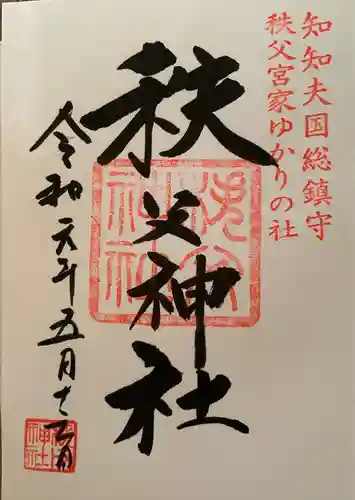 知知夫国総鎮守
秩父宮家ゆかりの社
秩父神社
秩父神社
令和元年五月十二日